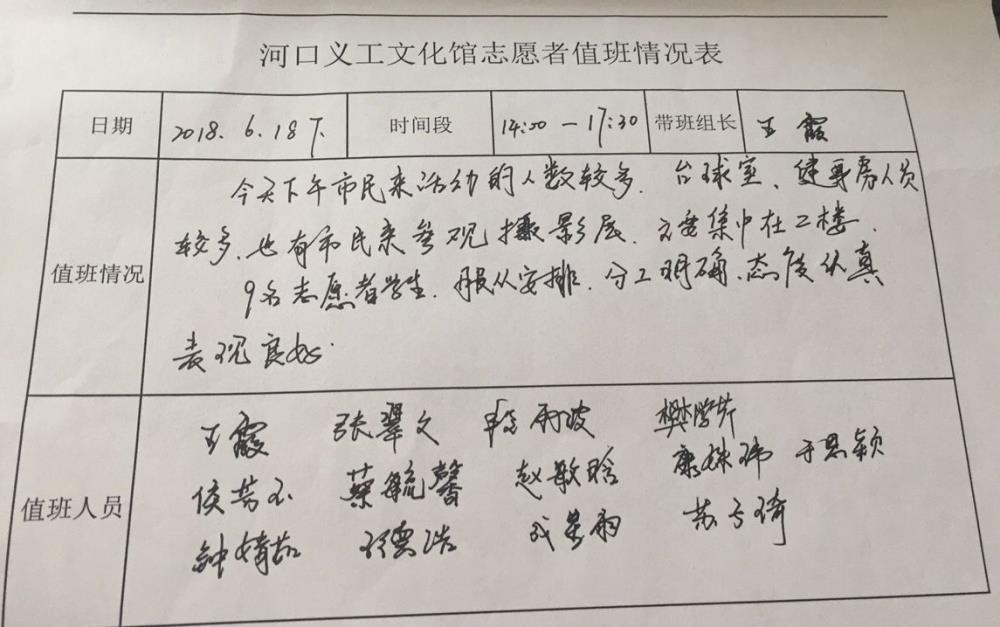 河口义工文化馆志愿者值班情况表
日期 2018.6.18下. 时间段 14:00—17:30 带班组长 王霞
值班情况
今天下午市民来活动的人数较多.台球室、健身房人员
较多.也有市民来参观摄影展.主要集中在二楼.
9名志愿者学生.服从安排.分工明确.态度认真
表现良好.
值班人员
王霞 张翠文 雨波 樊学芹
侯芳玉 蔡毓馨 赵敏晗 康姝玮 于思颖
钟婧茹 浩 成美雨 苏子琦